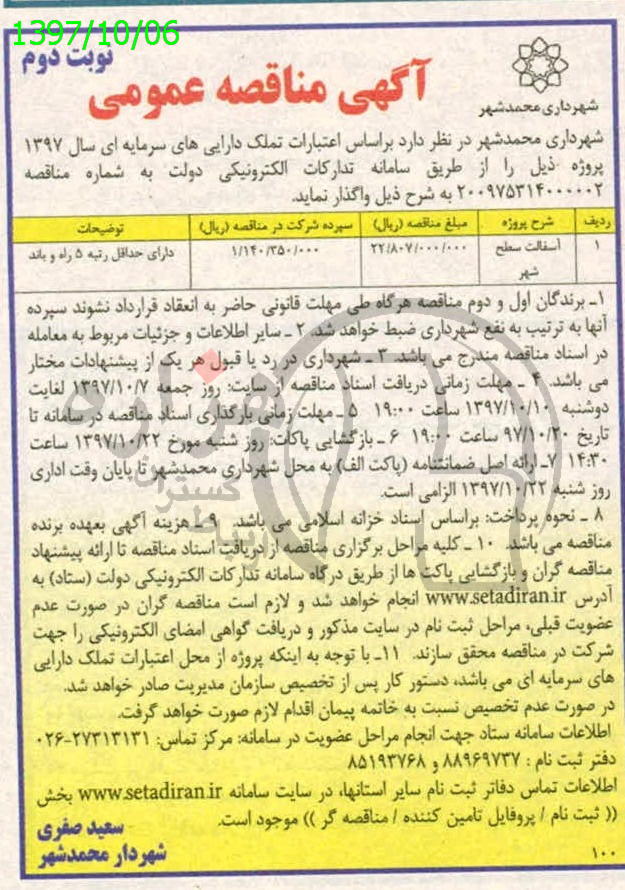 1397/10/06
نوبت دوم
آگهی مناقصه عمومی
شهرداری محمدشهر
شهرداری محمدشهر در نظر دارد براساس اعتبارات تملک دارایی های سرمایه ای سال ۱۳۹۷
پروژه ذیل را از طریق سامانه تدارکات الکترونیکی دولت به شماره مناقصه
۲۰۰۹۷۵۳۱۴۰۰۰۰۰۲ به شرح ذیل واگذار نماید.
ردیف شرح پروژه مبلغ مناقصه (ریال) سپرده شرکت در مناقصه (ریال) توضیحات
۱ آسفالت سطح ۲۲/۸۰۷/۰۰۰/۰۰۰ ۱/۱۴۰/۳۵۰/۰۰۰ دارای حداقل رتبه ۵ راه و باند
شهر
۱ـ برندگان اول و دوم مناقصه هرگاه طی مهلت قانونی حاضر به انعقاد قرارداد نشوند سپرده
آنها به ترتیب به نفع شهرداری ضبط خواهد شد. ۲ ـ سایر اطلاعات و جزئیات مربوط به معامله
در اسناد مناقصه مندرج می باشد. ۳ ـ شهرداری در رد یا قبول هر یک از پیشنهادات مختار
می باشد. ۴ ـ مهلت زمانی دریافت اسناد مناقصه از سایت: روز جمعه ۱۳۹۷/۱۰/۷ لغایت
دوشنبه ۱۳۹۷/۱۰/۱۰ ساعت ۱۹:۰۰ ۵ ـ مهلت زمانی بارگذاری اسناد مناقصه در سامانه تا
تاریخ ۹۷/۱۰/۲۰ ساعت ۱۹:۰۰ ۶ ـ بازگشایی پاکات: روز شنبه مورخ ۱۳۹۷/۱۰/۲۲ ساعت
۱۴:۳۰ ۷ـ ارائه اصل ضمانتنامه (پاکت الف) به محل شهرداری محمدشهر تا پایان وقت اداری
روز شنبه ۱۳۹۷/۱۰/۲۲ الزامی است.
۸ ـ نحوه پرداخت: براساس اسناد خزانه اسلامی می باشد. ۹ ـ هزینه آگهی بعهده برنده
مناقصه می باشد. ۱۰ ـ کلیه مراحل برگزاری مناقصه از دریافت اسناد مناقصه تا ارائه پیشنهاد
مناقصه گران و بازگشایی پاکت ها از طریق درگاه سامانه تدارکات الکترونیکی دولت (ستاد) به
آدرس www.setadiran.ir انجام خواهد شد و لازم است مناقصه گران در صورت عدم
عضویت قبلی، مراحل ثبت نام در سایت مذکور و دریافت گواهی امضای الکترونیکی را جهت
شرکت در مناقصه محقق سازند. ۱۱ـ با توجه به اینکه پروژه از محل اعتبارات تملک دارایی
های سرمایه ای می باشد، دستور کار پس از تخصیص سازمان مدیریت صادر خواهد شد.
در صورت عدم تخصیص نسبت به خاتمه پیمان اقدام لازم صورت خواهد گرفت.
اطلاعات سامانه ستاد جهت انجام مراحل عضویت در سامانه: مرکز تماس: ۲۷۳۱۳۱۳۱-۰۲۶
دفتر ثبت نام : ۸۸۹۶۹۷۳۷ و ۸۵۱۹۳۷۶۸
اطلاعات تماس دفاتر ثبت نام سایر استانها، در سایت سامانه www.setadiran.ir بخش
(( ثبت نام / پروفایل تامین کننده / مناقصه گر )) موجود است.
سعید صفری
شهردار محمدشهر
۱۰۰
هزاره